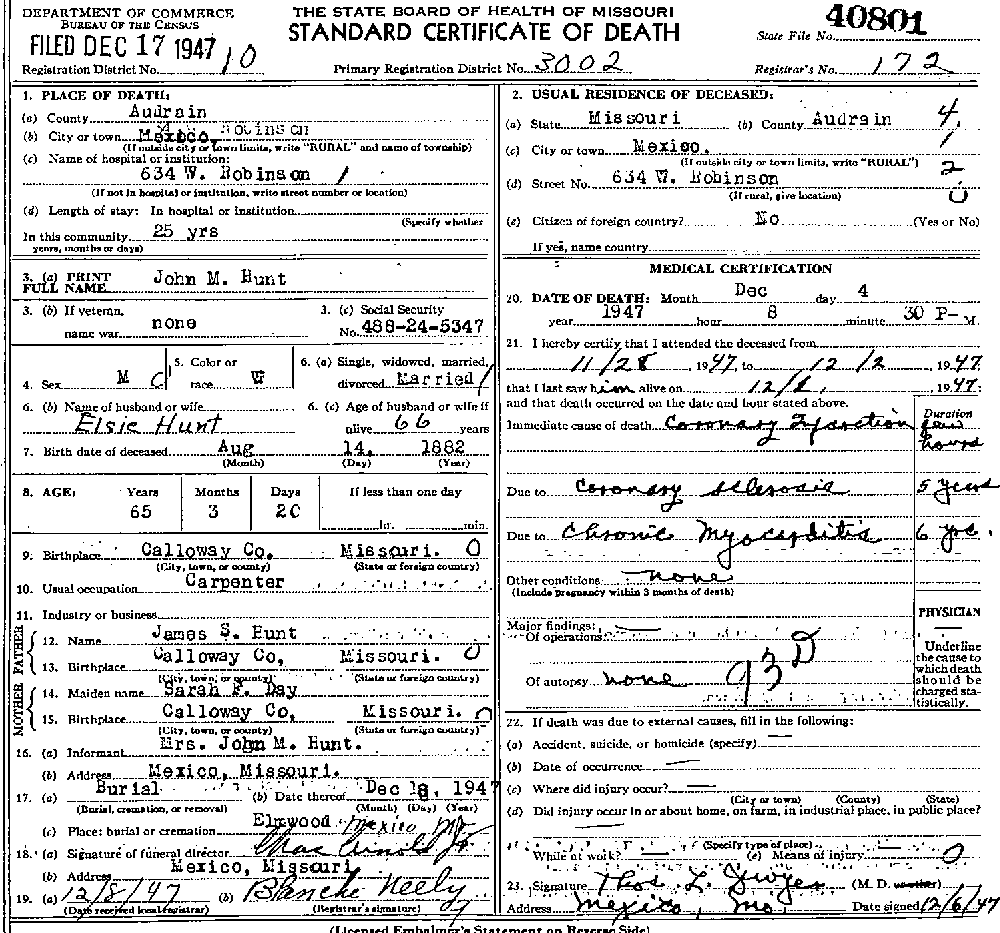 DEPARTMENT OF COMMERCE
BUREAU OF THE CENSUS
FILED DEC 17 1947
Registration District No. 10
THE STATE BOARD OF HEALTH OF MISSOURI
STANDARD CERTIFICATE OF DEATH
Primary Registration District No. 3002
40801
State File No.
Registrar's No. 172
1. PLACE OF DEATH:
(a) County Audrain
(b) City or town Mexico,
(If outside city or town limits, write "RURAL" and name of township)
(c) Name of hospital or institution:
634 W. Robinson 1
(If not in hospital or institution, write street number or location)
(d) Length of stay: In hospital or institution
(Specify whether
In this community 25 yrs
years, months or days)
2. USUAL RESIDENCE OF DECEASED:
(a) State Missouri (b) County Audrain 4
(c) City or town Mexico. 1
(If outside city or town limits, write "RURAL")
(d) Street No. 634 W. Robinson 2
(If rural, give location) 0
(e) Citizen of foreign country? No (Yes or No)
If yes, name country
3. (a) PRINT FULL NAME John M. Hunt
3. (b) If veteran, name war none
3. (c) Social Security No. 488-24-5347
4. Sex M
5. Color or race W
6. (a) Single, widowed, married, divorced Married
6. (b) Name of husband or wife Elsie Hunt
6. (c) Age of husband or wife if alive 66 years
7. Birth date of deceased Aug 14, 1882
(Month) (Day) (Year)
8. AGE: Years Months Days If less than one day
65 3 20 hr. min.
9. Birthplace Calloway Co, Missouri. 0
(City, town, or county) (State or foreign country)
10. Usual occupation Carpenter
11. Industry or business
FATHER
12. Name James S. Hunt
13. Birthplace Calloway Co, Missouri. 0
(City, town, or county) (State or foreign country)
MOTHER
14. Maiden name Sarah F. Day
15. Birthplace Calloway Co, Missouri. 0
(City, town, or county) (State or foreign country)
16. (a) Informant Mrs. John M. Hunt.
(b) Address Mexico, Missouri.
17. (a) Burial (b) Date thereof Dec 8, 1947
(Burial, cremation, or removal) (Month) (Day) (Year)
(c) Place: burial or cremation Elmwood Mexico Mo
18. (a) Signature of funeral director Chas Arnold Jr.
(b) Address Mexico, Missouri
19. (a) 12/8/47 (b) Blanche Neely
(Date received local registrar) (Registrar's signature)
MEDICAL CERTIFICATION
20. DATE OF DEATH: Month Dec day 4
year 1947 hour 8 minute 30 P- M.
21. I hereby certify that I attended the deceased from
11/28, 1947, to 12/2 1947
that I last saw him alive on 12/2, 1947;
and that death occurred on the date and hour stated above.
Duration
Immediate cause of death Coronary few hours
Due to Coronary sclerosis 5 years
Due to Chronic Myocarditis 6 yrs.
Other conditions none
(Include pregnancy within 3 months of death)
Major findings:
Of operations
93D
Of autopsy none
PHYSICIAN
Underline the cause to which death should be charged statistically.
22. If death was due to external causes, fill in the following:
(a) Accident, suicide, or homicide (specify)
(b) Date of occurrence
(c) Where did injury occur?
(City or town) (County) (State)
(d) Did injury occur in or about home, on farm, in industrial place, in public place?
(Specify type of place)
While at work? (e) Means of injury 0
23. Signature Thos. L. Dwyer (M. D. or other)
Address Mexico, Mo. Date signed 12/6/47
(Licensed Embalmer's Statement on Reverse Side)